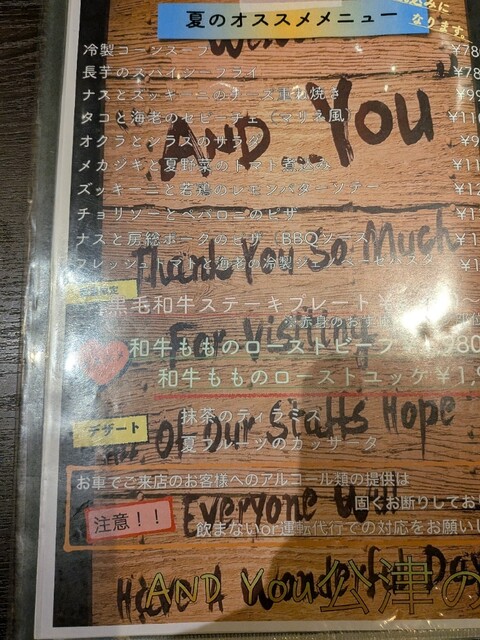 込みに
なります。
夏のオススメメニュー
冷製コーンスープ ¥780
長芋のスパイシーフライ ¥78
ナスとズッキーニのチーズ重ね焼き ¥99
タコと海老のセビーチェ(マリネ風) ¥110
オクラとシラスのサラダ ¥9
メカジキと夏野菜のトマト煮込み ¥11
ズッキーニと若鶏のレモンバターソテー ¥12
チョリソーとペパロニのピザ ¥1
ナスと房総ポークのピザ(BBQソース) ¥1
海老の冷製 ¥1
黒毛和牛ステーキプレート ¥
赤身のお
和牛もものローストビーフ 980
和牛もものローストユッケ ¥1,9
デザート
抹茶のティラミス
夏フルーツのカッサータ
お車でご来店のお客様へのアルコール類の提供は
固くお断りしてお
注意!!
飲まないor運転代行での対応をお願いし
AND You 公津の
AND You
Thank You So Much
For Visiting
Of Our Staffs Hope
Everyone Will
Have A Wonderful Day